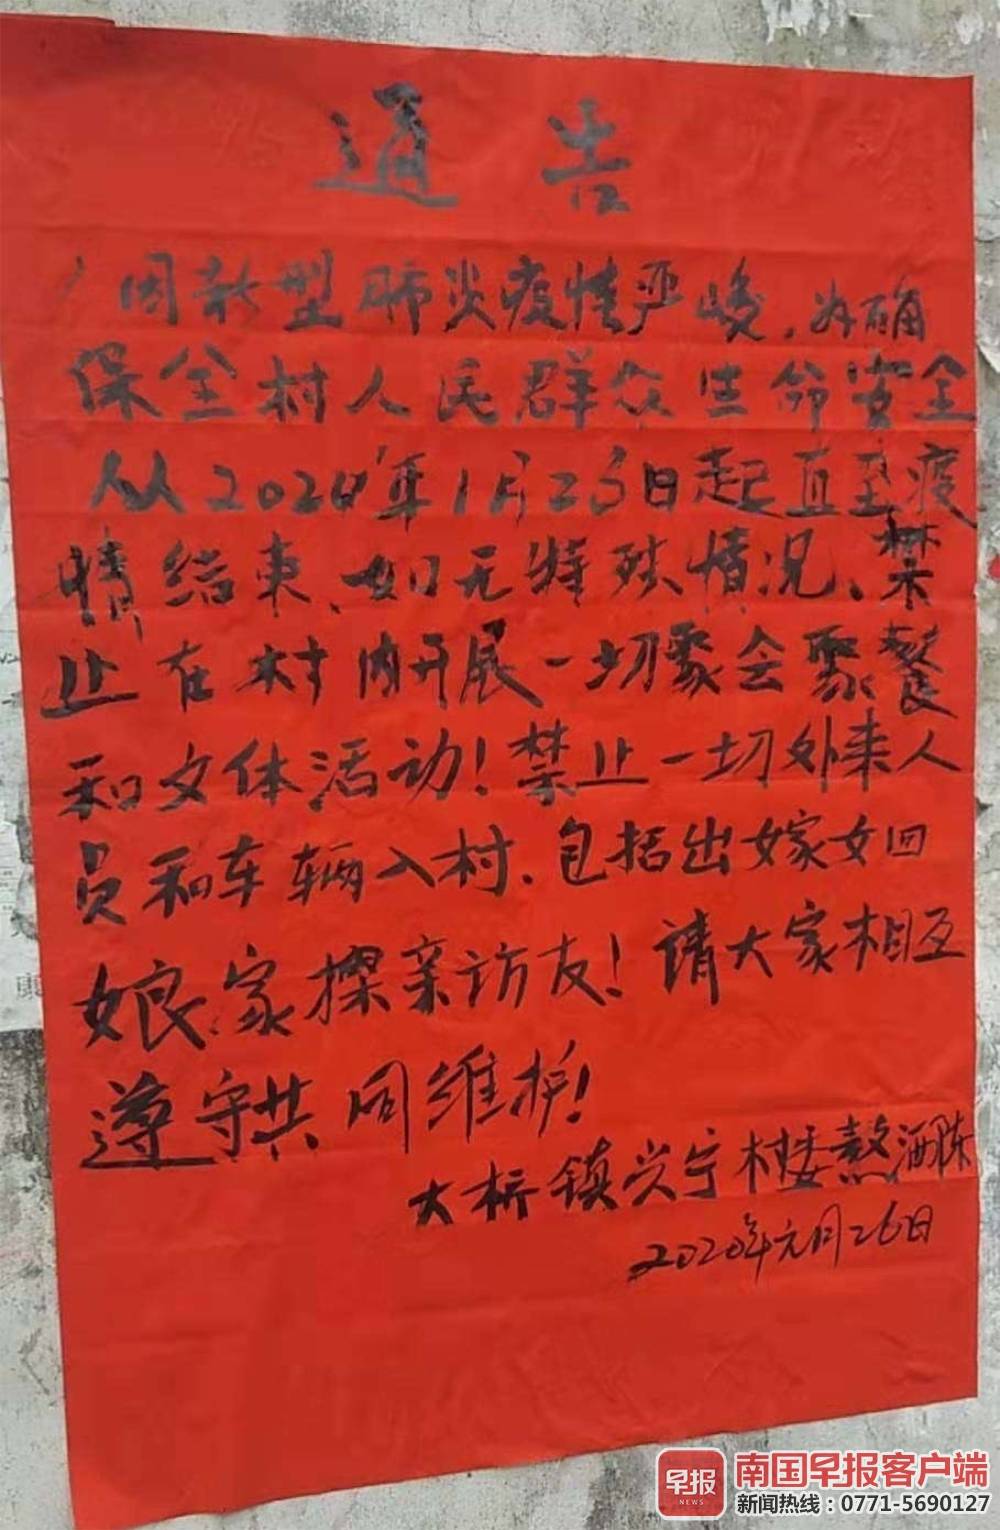 通告
因新型肺炎疫情严峻，为确
保全村人民群众生命安全
从2020年1月26日起直至疫
情结束、如无特殊情况、禁
止在村内开展一切聚会聚餐
和文体活动！禁止一切外来人
员和车辆入村、包括出嫁女回
娘家探亲访友！请大家相互
遵守共同维护！
大桥镇兴宁村委敖洒陈
2020年元月26日
早报
NEWS
南国早报客户端
新闻热线：0771-5690127